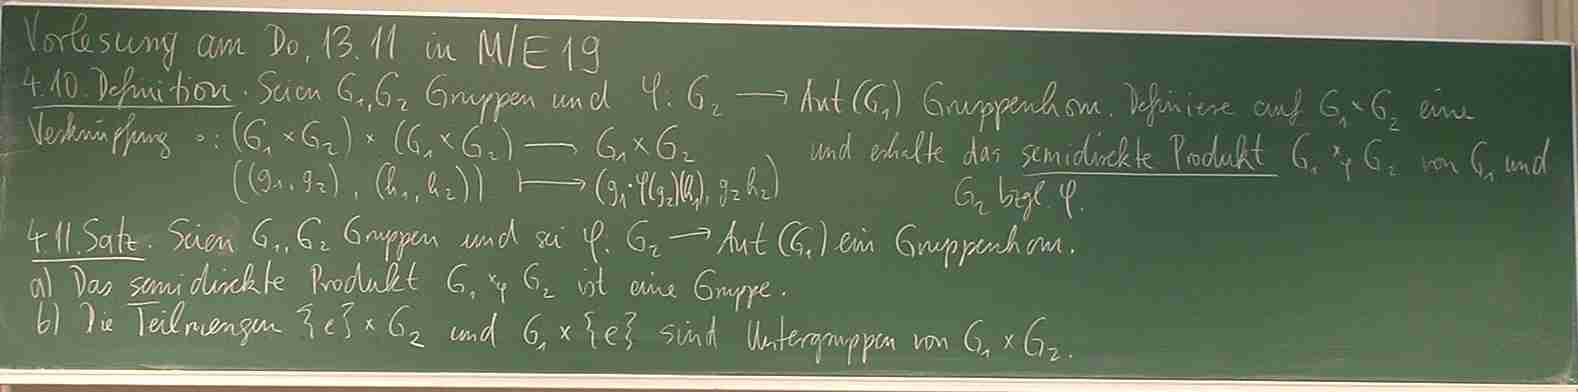 Vorlesung am Do, 13.11 in M/E19
4.10. Definition. Seien G₁, G₂ Gruppen und φ: G₂ → Aut(G₁) Gruppenhom. Definiere auf G₁×G₂ eine
Verknüpfung ∘: (G₁×G₂) × (G₁×G₂) → G₁×G₂ und erhalte das semidirekte Produkt G₁ ⋊φ G₂ von G₁ und
((g₁, g₂), (h₁, h₂)) ↦ (g₁·φ(g₂)(h₁), g₂h₂) G₂ bzgl. φ.
4.11. Satz. Seien G₁, G₂ Gruppen und sei φ: G₂ → Aut(G₁) ein Gruppenhom.
a) Das semidirekte Produkt G₁ ⋊φ G₂ ist eine Gruppe.
b) Die Teilmengen {e}×G₂ und G₁×{e} sind Untergruppen von G₁×G₂.